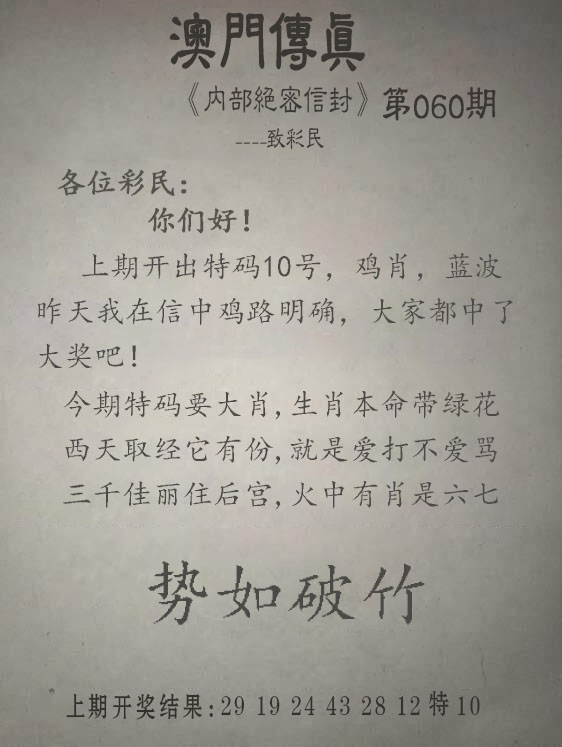 澳門傳眞
《内部絕密信封》第060期
----致彩民
各位彩民：
你们好！
上期开出特码10号，鸡肖，蓝波
昨天我在信中鸡路明确，大家都中了
大奖吧！
今期特码要大肖,生肖本命带绿花
西天取经它有份,就是爱打不爱骂
三千佳丽住后宫,火中有肖是六七
势如破竹
上期开奖结果:29 19 24 43 28 12 特 10